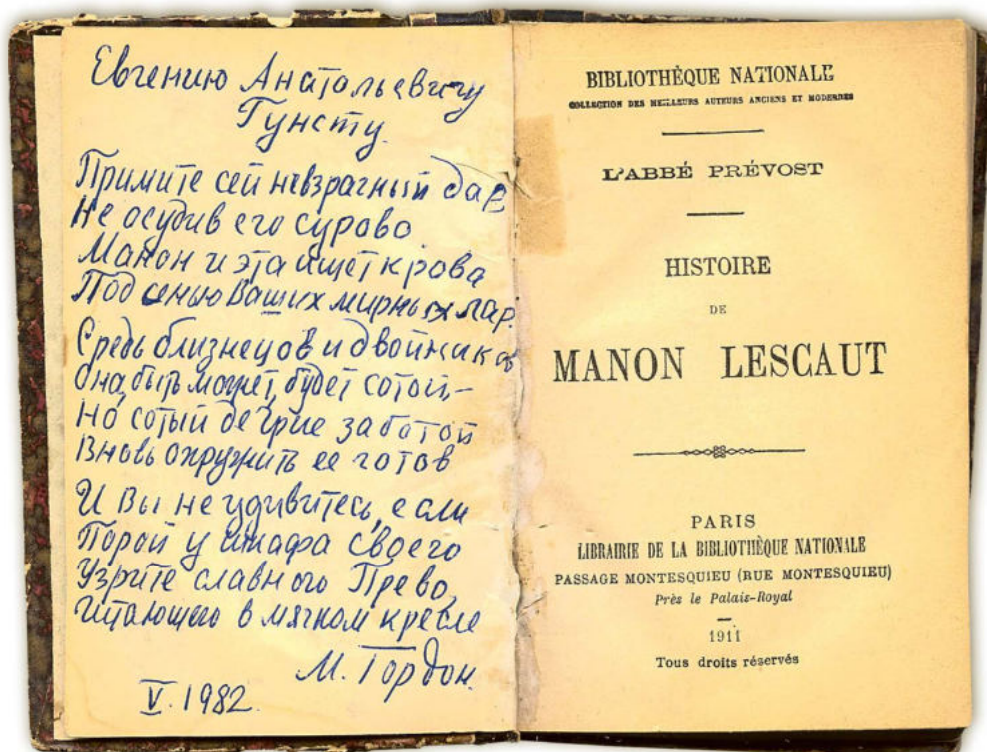 Евгению Анатольевичу
Гунсту.
Примите сей невзрачный дар,
Не осудив его сурово.
Манон и эта ищет крова
Под сенью Ваших мирных лар.
Средь близнецов и двойников
Она, быть может, будет сотой,–
Но сотый де Грие заботой
Вновь окружить ее готов
И Вы не удивитесь, если
Порой у шкафа своего
Узрите славного Прево,
Читающего в мягком кресле
М. Гордон.
V. 1982.
BIBLIOTHÈQUE NATIONALE
COLLECTION DES MEILLEURS AUTEURS ANCIENS ET MODERNES
L'ABBÉ PRÉVOST
HISTOIRE
DE
MANON LESCAUT
PARIS
LIBRAIRIE DE LA BIBLIOTHÈQUE NATIONALE
PASSAGE MONTESQUIEU (RUE MONTESQUIEU)
Près le Palais-Royal
1911
Tous droits réservés